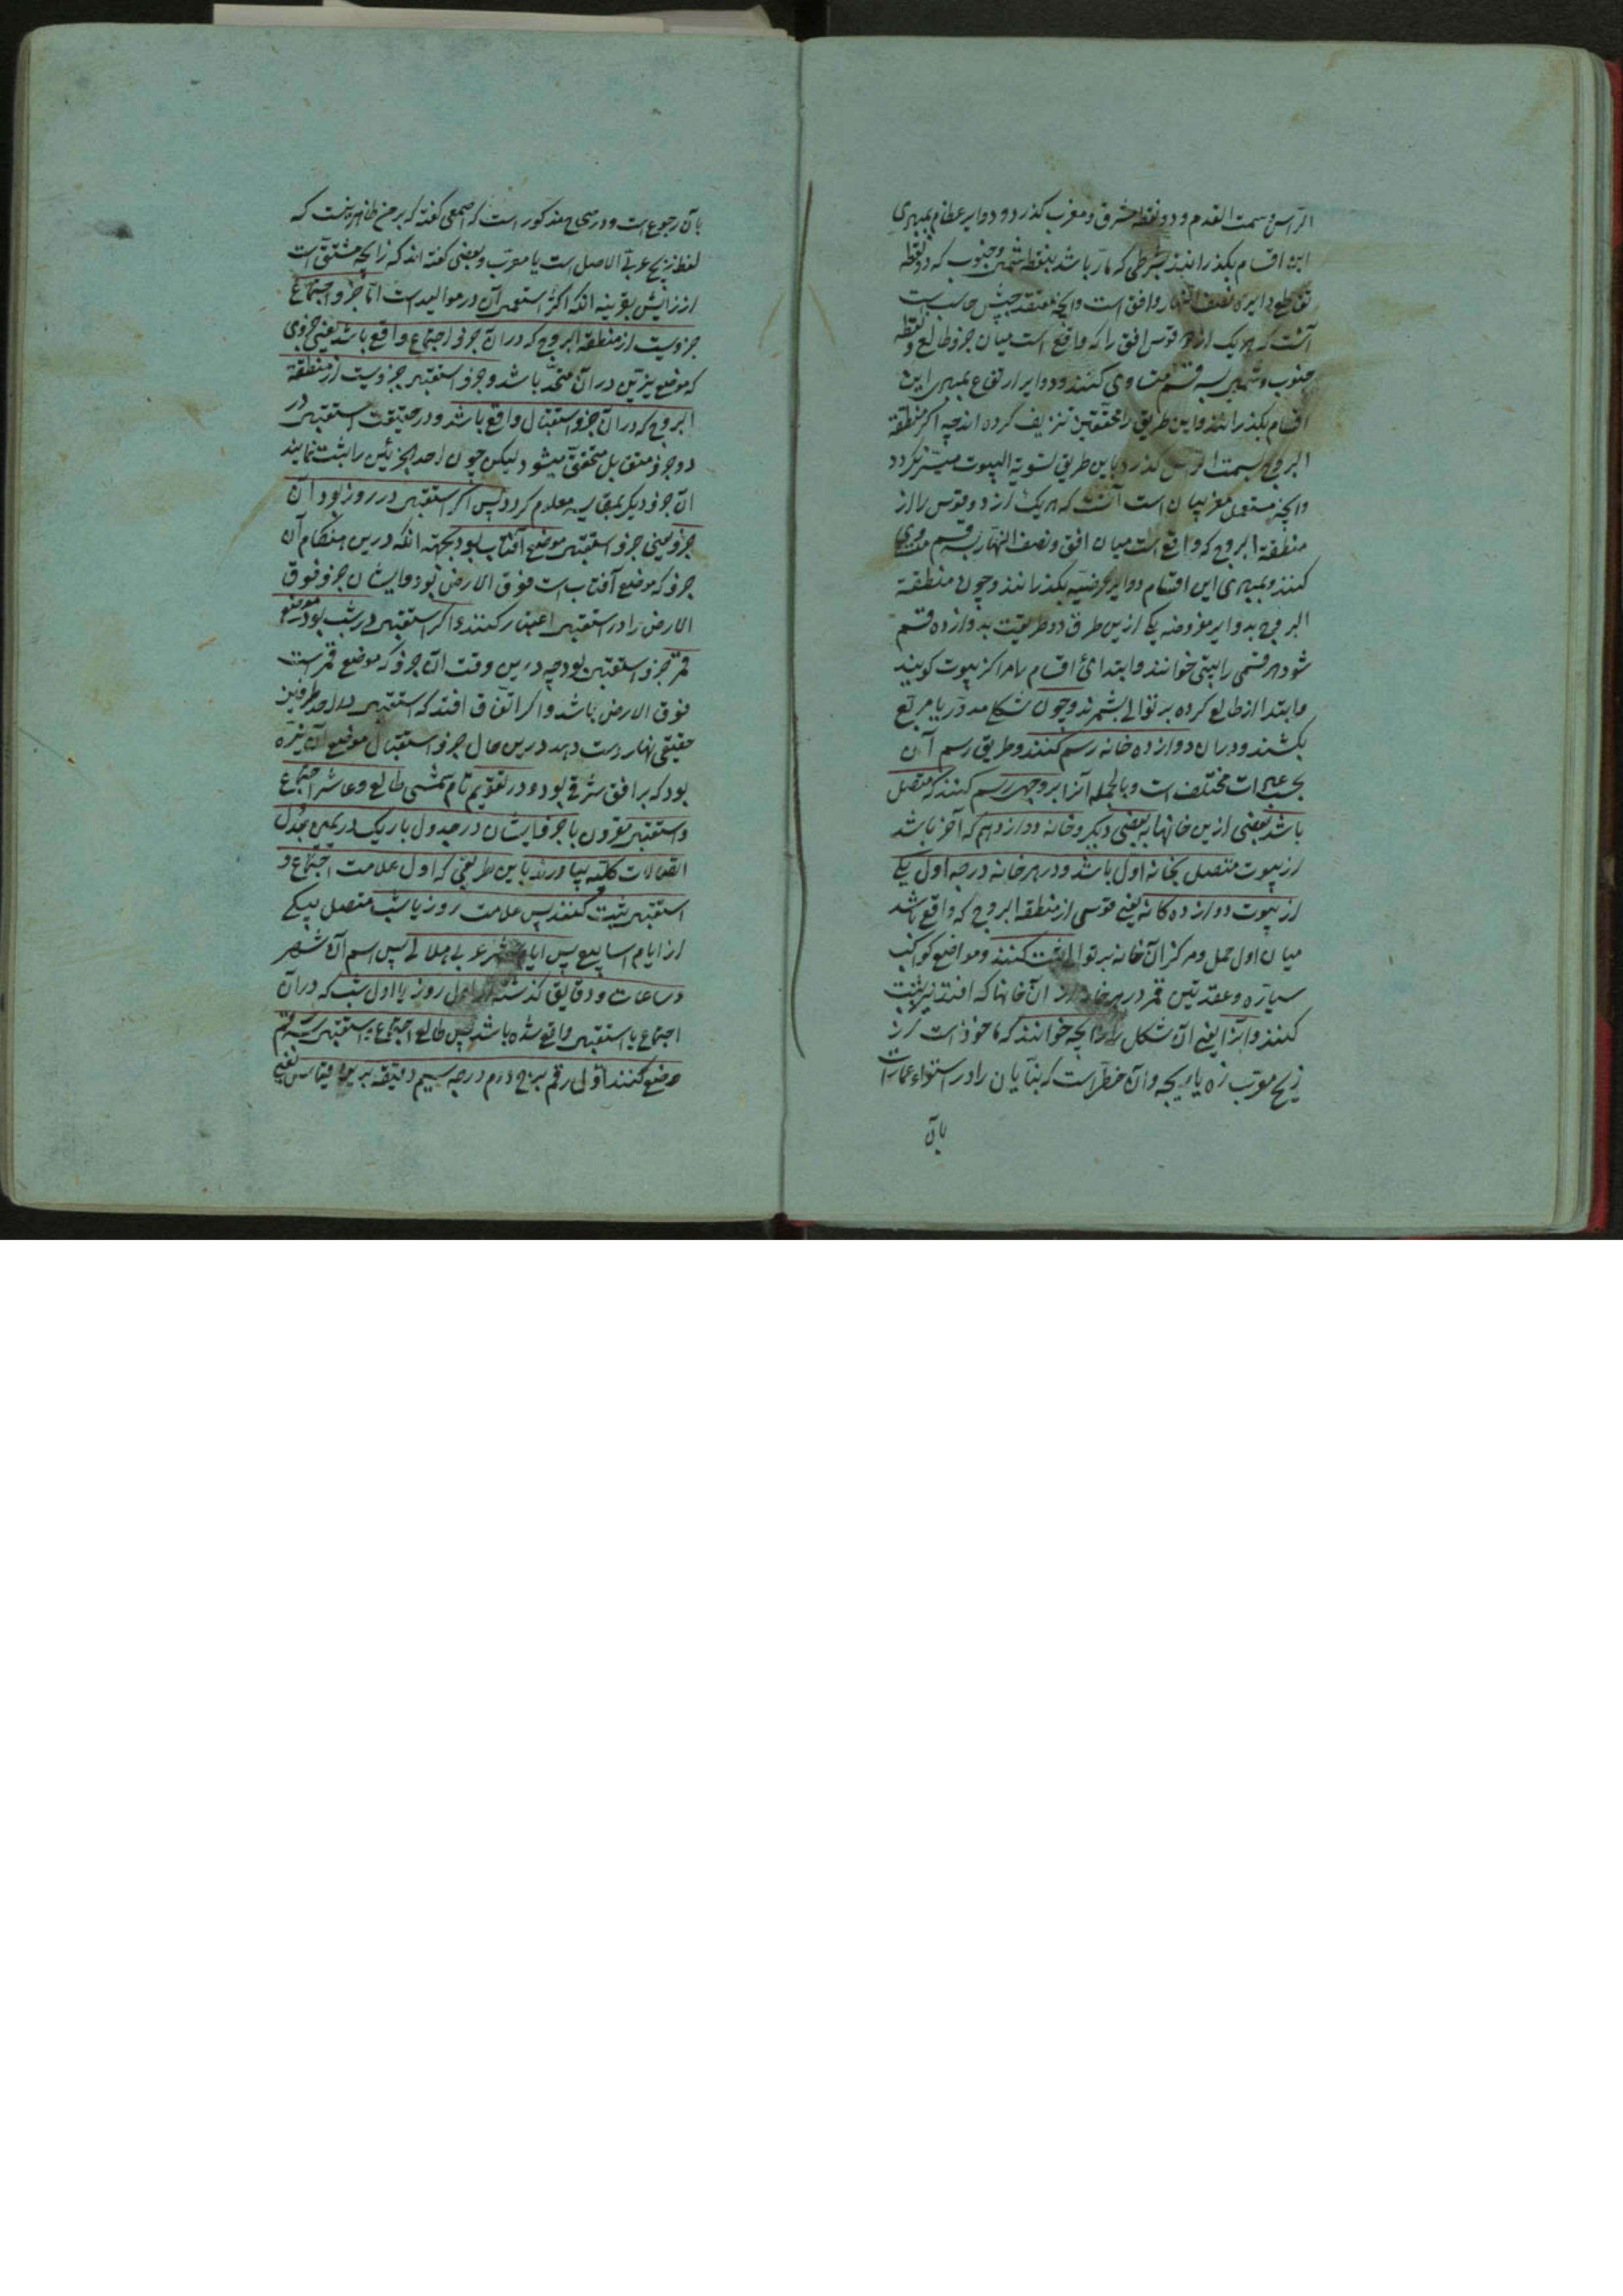 الرأس و سمت القدم و دو نقطه مشرق و مغرب گذرد و دوایر عظام بمبادی
این اقسام بگذرانند بشرطی که مار باشد بنقطه شمال و جنوب که دو نقطه
تقاطع دایره نصف النهار و افق است و آنچه معتقد حبش حاسب است
آنست که هر یک از دو قوس افق را که واقع است میان جزو طالع و نقطه
جنوب و شمال بسه قسم متساوی کنند و دوایر ارتفاع بمبادی این
اقسام بگذرانند و این طریق را محققین تزییف کرده اند چه اگر منطقة
البروج بسمت الرأس گذرد باین طریق تسویة البیوت میسر نگردد
و آنچه مستعمل مغربیان است آنست که هر یک از دو قوس را از
منطقة البروج که واقع است میان افق و نصف النهار بسه قسم متساوی
کنند و بمبادی این اقسام دوایر عرضیه بگذرانند و چون منطقة
البروج بدوایر مفروضه یکی ازین طرق و طریقت بدوازده قسم
شود هر قسمی را بیتی خوانند و ابتدای اقسام را مراکز بیوت گویند
و ابتدا از طالع کرده بر توالی بشمرند و چون شکل مدور یا مربع
بکشند و در ان دوازده خانه رسم کنند و طریق رسم آن
بحسب عبارات مختلف است و بالجمله آنرا بر وجهی رسم کنند که متصل
باشد بعضی ازین خانها به بعضی دیگر و خانه دوازدهم که آخر باشد
از بیوت متصل بخانه اول باشد و در هر خانه درجه اول یکی
از بیوت دوازده کانه یعنی قوسی از منطقة البروج که واقع باشد
میان اول حمل و مرکز آن خانه بر توالی ثبت کنند و مواضع کواکب
سیاره و عقدتین قمر در هر خانه از ان خانها که افتد نیز ثبت
کنند و آنرا یعنی ان شکل را زایچه خوانند که ماخوذ است از
زیج معرب زه یا زیچه و آن خط است که بنایان را در استواء عمارات
بآن
بآن رجوع است و در صحاح مذکور است که اصمعی گفته که بر من ظاهر نیست که
لفظ زیج عربی الاصل است یا معرب و بعضی گفته اند که زایچه مشتق است
از زایش بقرینه انکه اکثر استعمال آن در موالید است اما جزو اجتماع
جزویست از منطقة البروج که در ان جزو اجتماع واقع باشد یعنی جزوی
که موضع نیرین در آن متحد باشد و جزو استقبال جزویست از منطقة
البروج که در ان جزو استقبال واقع باشد و در حقیقت استقبال در
دو جزو متقابل متحقق میشود لیکن چون احد الجزئین را ثبت نمایند
ان جزو دیگر بمقایسه معلوم گردد پس اگر استقبال در روز بود ان
جزو یعنی جزو استقبال موضع آفتاب بود بجهة انکه درین هنگام آن
جزو که موضع آفتاب است فوق الارض بود و ایشان جزو فوق
الارض را در استقبال اعتبار کنند و اگر استقبال در شب بود موضع
قمر جزو استقبال بود چه درین وقت ان جزو که موضع قمر است
فوق الارض باشد و اگر اتفاق افتد که استقبال در احد طرفین
حقیقی نهار دست دهد درین حال جزو استقبال موضع آن نیر
بود که بر افق شرقی بود و در تقویم تام شمسی طالع و عاشر اجتماع
و استقبال مقرون با جزو ایشان در جدول باریک در یمین جدول
اتصالات کلیه بیاورند باین طریق که اول علامت اجتماع و
استقبال ثبت کنند پس علامت روز یا شب متصل بیکی
از ایام اسابیع پس ایام شهر عربی هلالی پس اسم آن شهر
و ساعات و دقایق گذشته از اول روز یا اول شب که در آن
اجتماع یا استقبال واقع شده باشد پس طالع اجتماع یا استقبال بسه رقم
وضع کنند اول رقم برج دوم درجه سیم دقیقه برین قیاس یعنی